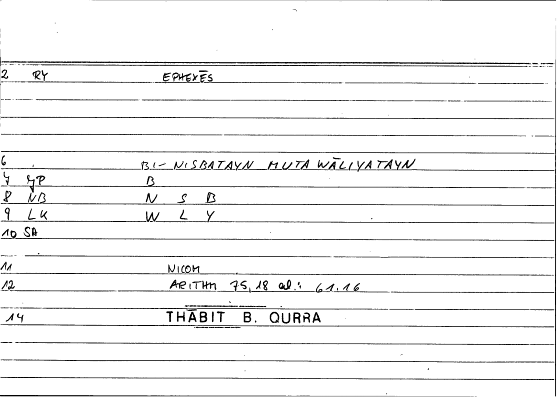 2 RY EPHEXĒS
6 BI- NISBATAYN MUTAWĀLIYATAYN
7 JP B
8 NB N S B
9 LK W L Y
10 SA
11 NICOM
12 ARITHM 75,18 al.: 61.16
14 THĀBIT B. QURRA